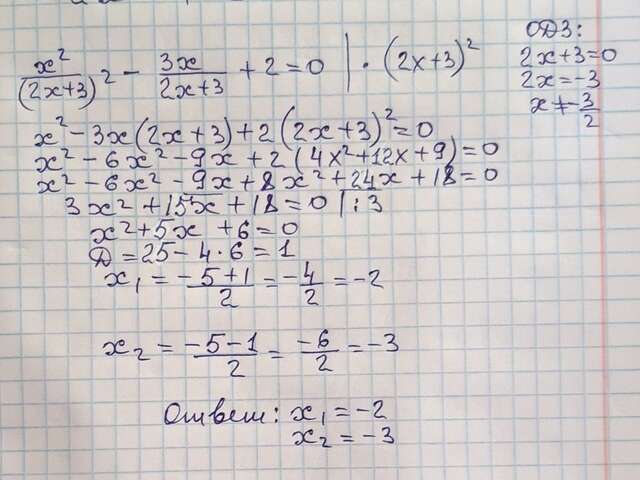 x²/(2x+3)² - 3x/(2x+3) + 2 = 0 | · (2x+3)²
ОДЗ:
2x+3=0
2x=-3
x≠-3/2
x² - 3x(2x+3) + 2(2x+3)² = 0
x² - 6x² - 9x + 2(4x² + 12x + 9) = 0
x² - 6x² - 9x + 8x² + 24x + 18 = 0
3x² + 15x + 18 = 0 | : 3
x² + 5x + 6 = 0
Д = 25 - 4 · 6 = 1
x₁ = (-5+1)/2 = -4/2 = -2
x₂ = (-5-1)/2 = -6/2 = -3
Ответ: x₁ = -2
x₂ = -3